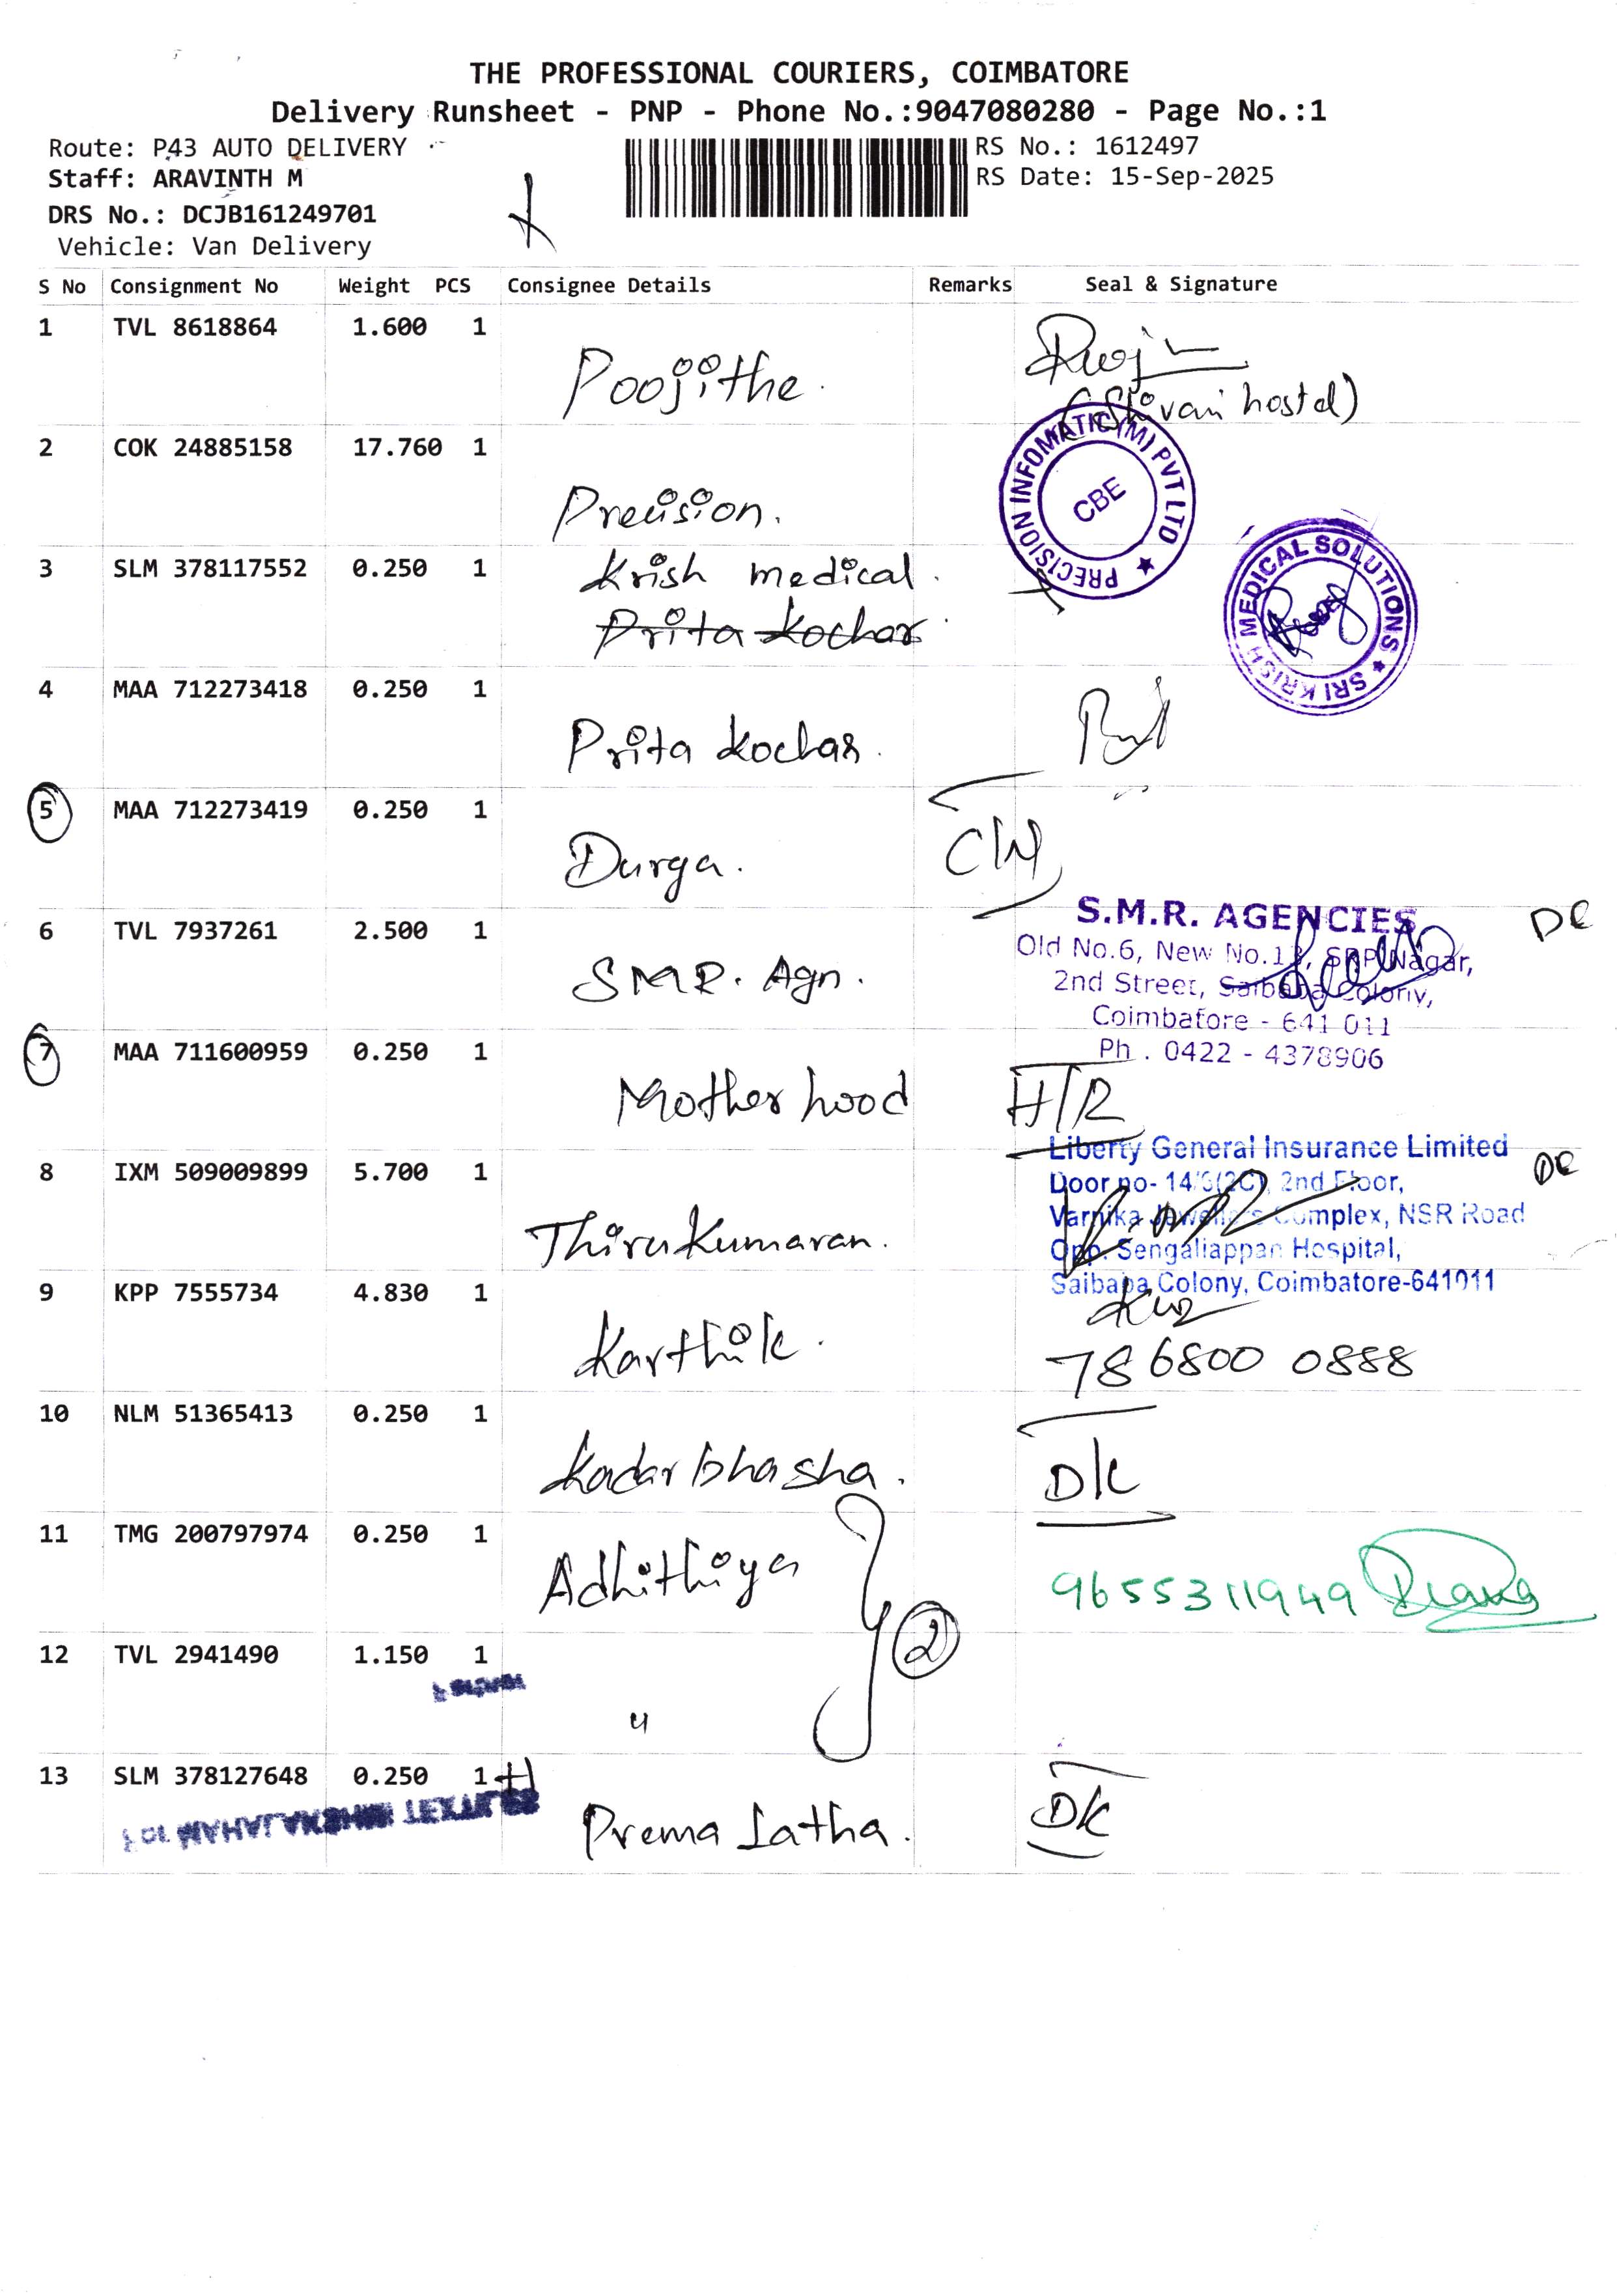 THE PROFESSIONAL COURIERS, COIMBATORE
Delivery Runsheet - PNP - Phone No.:9047080280 - Page No.:1
Route: P43 AUTO DELIVERY
Staff: ARAVINTH M
DRS No.: DCJB161249701
Vehicle: Van Delivery
RS No.: 1612497
RS Date: 15-Sep-2025
S No Consignment No Weight PCS Consignee Details Remarks Seal & Signature
1 TVL 8618864 1.600 1
Poojithe.
hostel)
2 COK 24885158 17.760 1
Precision.
PRECISION INFOMATIC (M) PVT LTD ★
CBE
3 SLM 378117552 0.250 1
Krish medical.
Prita Kochar
SRI KRISH MEDICAL SOLUTIONS ★
4 MAA 712273418 0.250 1
Prita Kochar.
5 MAA 712273419 0.250 1
Durga.
6 TVL 7937261 2.500 1
SMR. Agn.
S.M.R. AGENCIES
Old No.6, New No. Nagar,
2nd Street, Saibaba Colony,
Coimbatore - 641 011
Ph . 0422 - 4378906
7 MAA 711600959 0.250 1
Motherhood
H/R
8 IXM 509009899 5.700 1
Thirukumaran.
Liberty General Insurance Limited
Door no- 2nd Floor,
Varnika Jewellers Complex, NSR Road
Opp. Sengaliappan Hospital,
Saibaba Colony, Coimbatore-641011
9 KPP 7555734 4.830 1
Karthik.
786800 0888
10 NLM 51365413 0.250 1
Kadar bhasha.
D/C
11 TMG 200797974 0.250 1
Adhithiya
2
9655311949
12 TVL 2941490 1.150 1
"
13 SLM 378127648 0.250 1
Prema Latha.